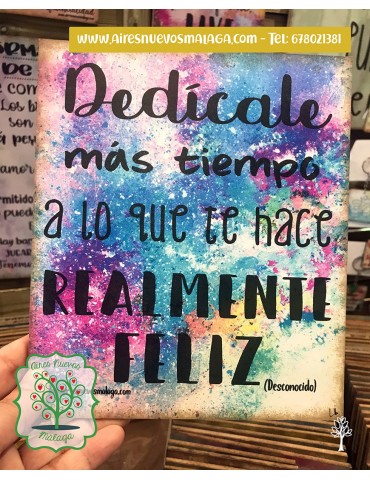 www.airesnuevosmalaga.com - Tel: 678021381
Dedícale
más tiempo
a lo que te hace
REALMENTE
FELIZ
(Desconocido)
Aires Nuevos
Málaga